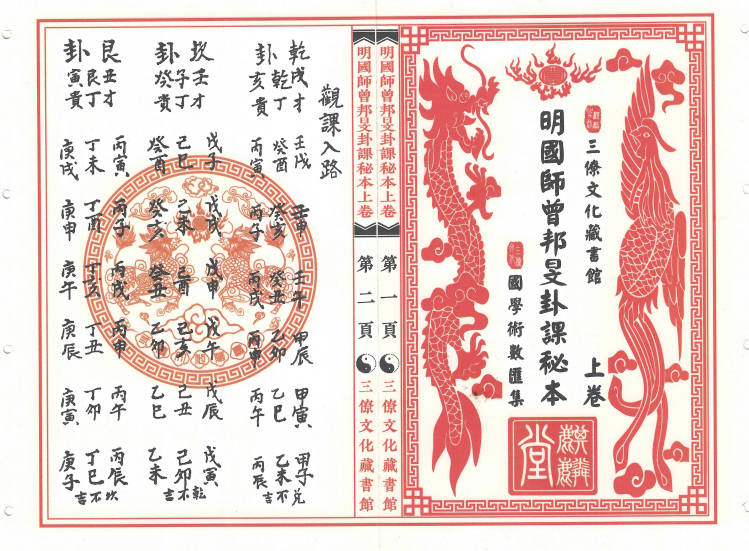 三僚文化藏書館
明國師曾邦旻卦課秘本
上卷
國學術數匯集
麒麟堂
明國師曾邦旻卦課秘本上卷 第一頁 三僚文化藏書館
明國師曾邦旻卦課秘本上卷 第二頁 三僚文化藏書館
觀課入路
乾戌才 壬戌 壬申 壬午 甲辰 甲寅 甲子兌
乾丁 癸酉 癸亥 癸丑 乙卯 乙巳 乙未不
卦亥貴 丙寅 丙子 丙戌 丙申 丙午 丙辰吉
坎壬才 戊子 戊戌 戊申 戊午 戊辰 戊寅乾
子丁 己巳 己未 己酉 己亥 己丑 己卯不
卦癸貴 癸酉 癸亥 癸丑 乙卯 乙巳 乙未吉
艮丑才 丙寅 丙子 丙戌 丙申 丙午 丙辰坎
艮丁 丁未 丁酉 丁亥 丁丑 丁卯 丁巳不
卦寅貴 庚戌 庚申 庚午 庚辰 庚寅 庚子吉